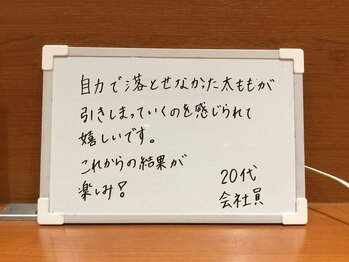 自力で落とせなかった太ももが
引きしまっていくのを感じられて
嬉しいです。
これからの結果が
楽しみ!
20代
会社員